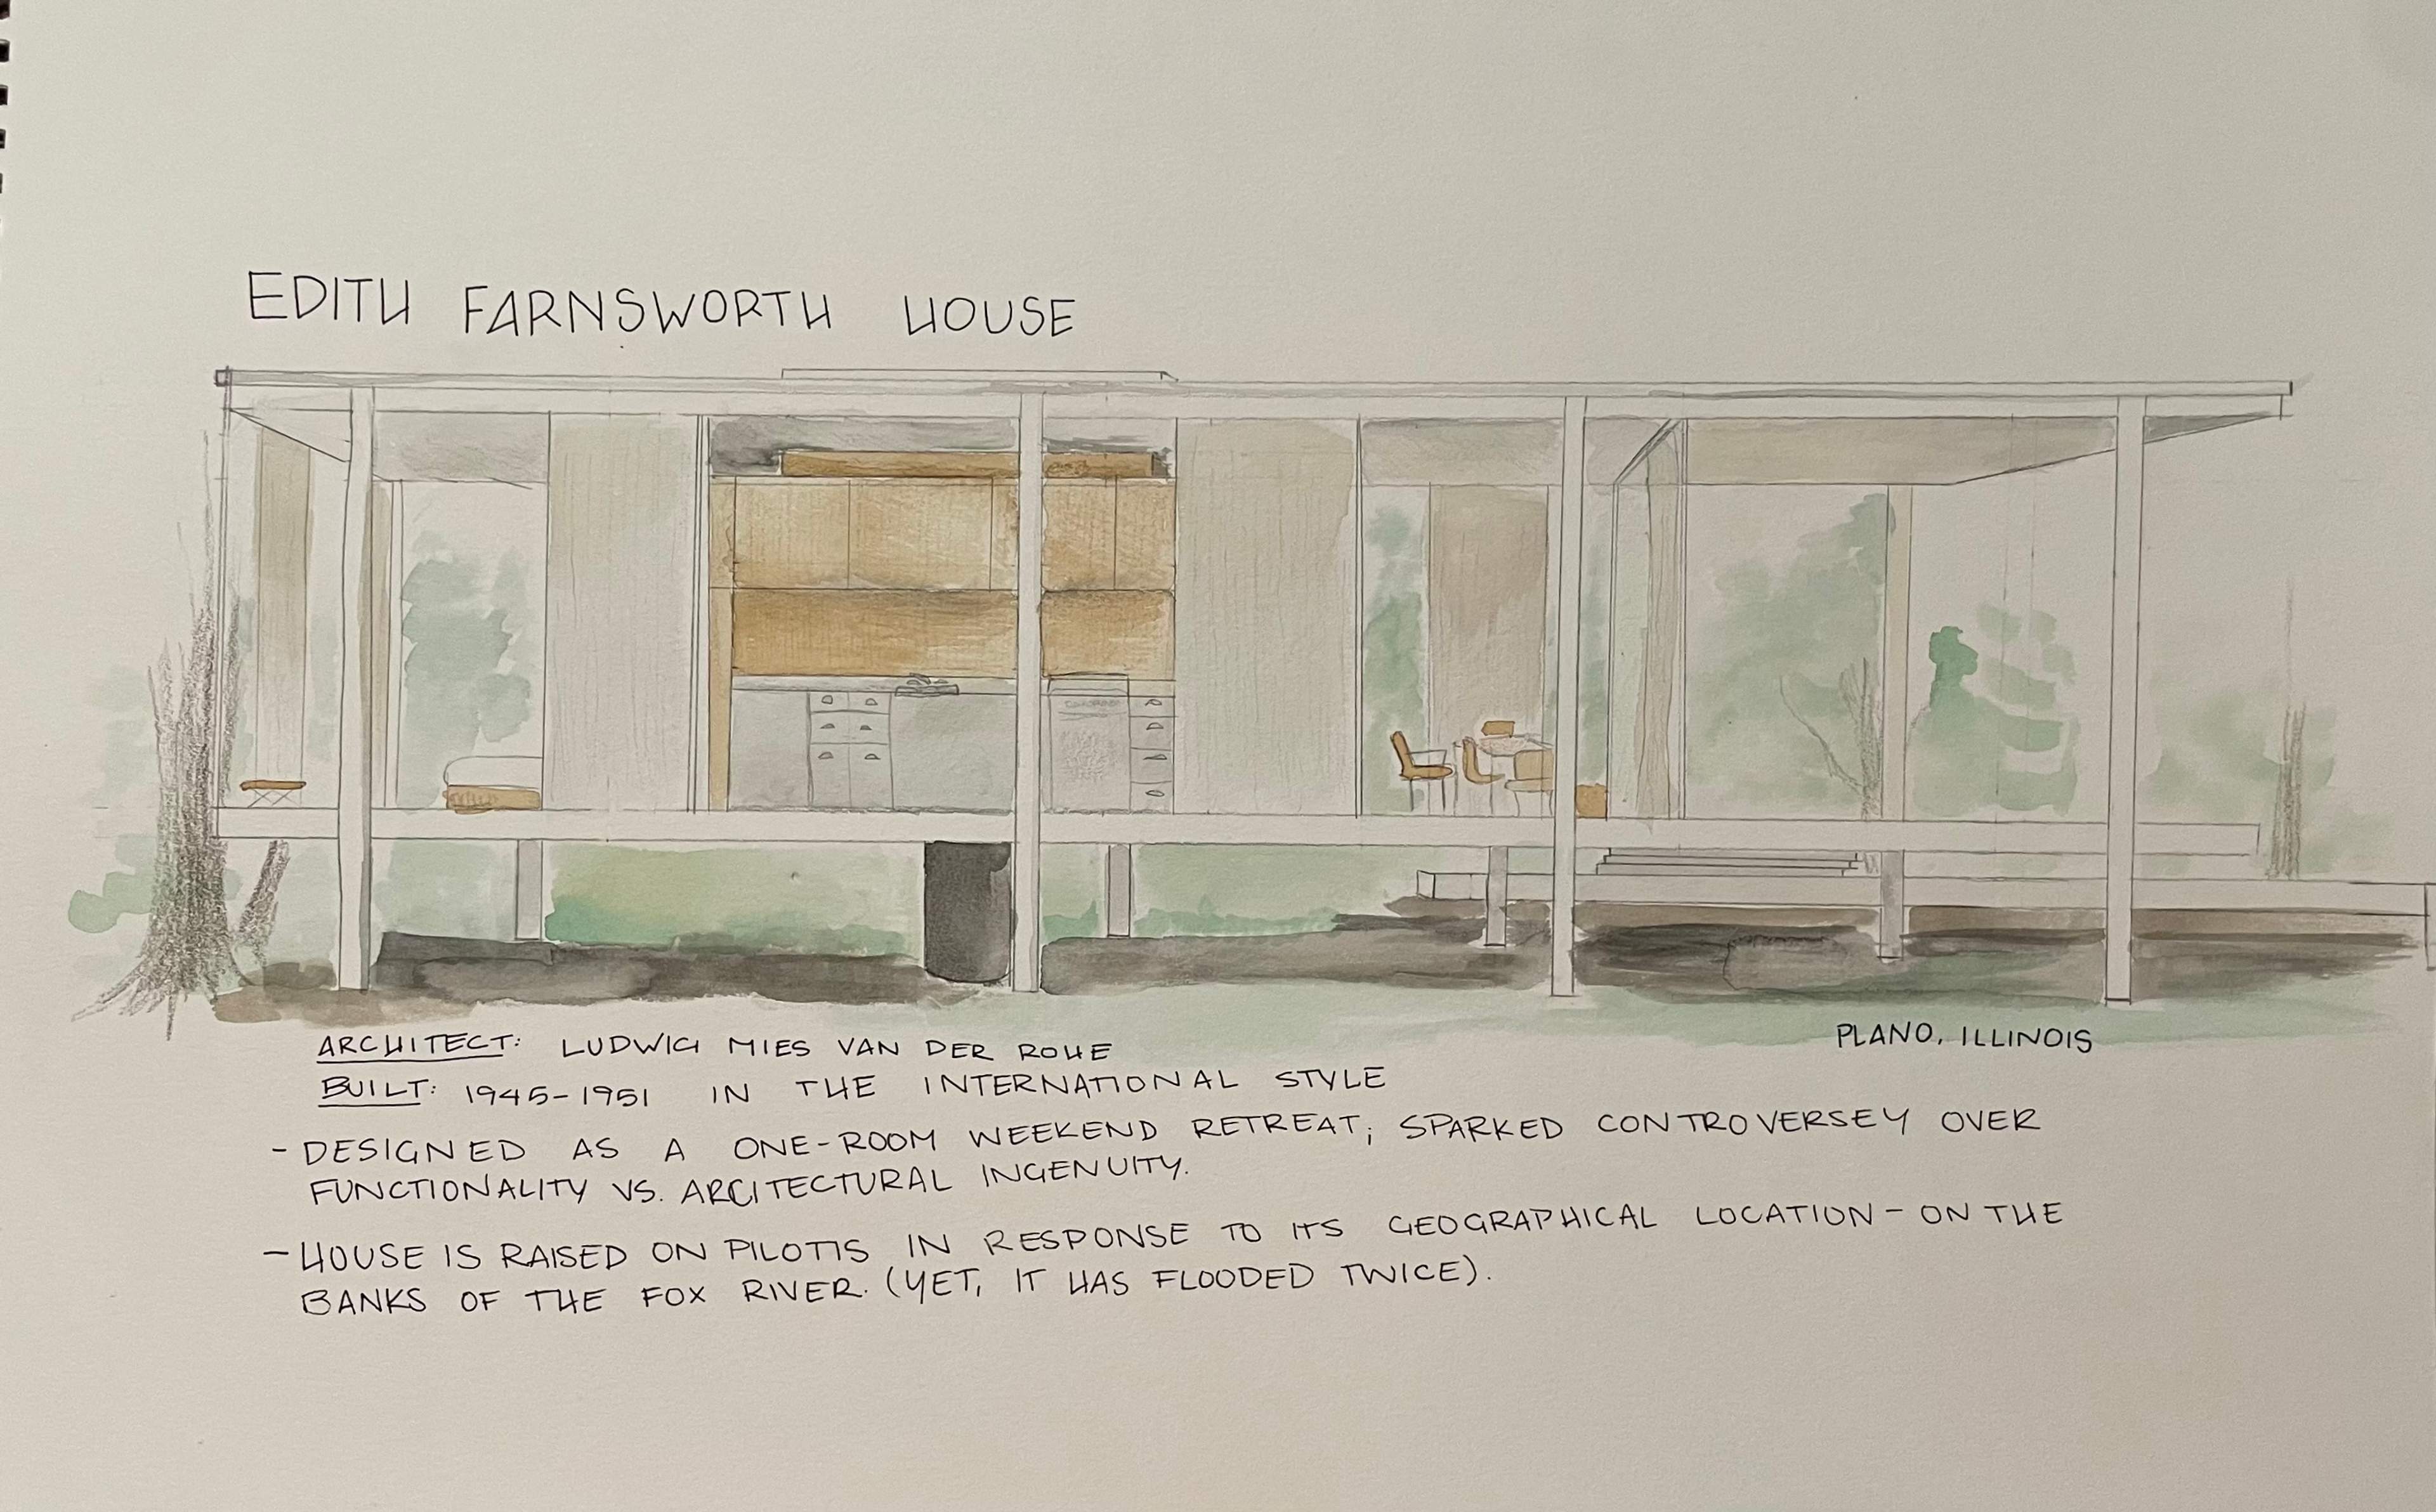 EDITH FARNSWORTH HOUSE
PLANO, ILLINOIS
ARCHITECT: LUDWIG MIES VAN DER ROHE
BUILT: 1945-1951 IN THE INTERNATIONAL STYLE
- DESIGNED AS A ONE-ROOM WEEKEND RETREAT; SPARKED CONTROVERSEY OVER
FUNCTIONALITY VS. ARCITECTURAL INGENUITY.
- HOUSE IS RAISED ON PILOTIS IN RESPONSE TO ITS GEOGRAPHICAL LOCATION - ON THE
BANKS OF THE FOX RIVER. (YET, IT HAS FLOODED TWICE).